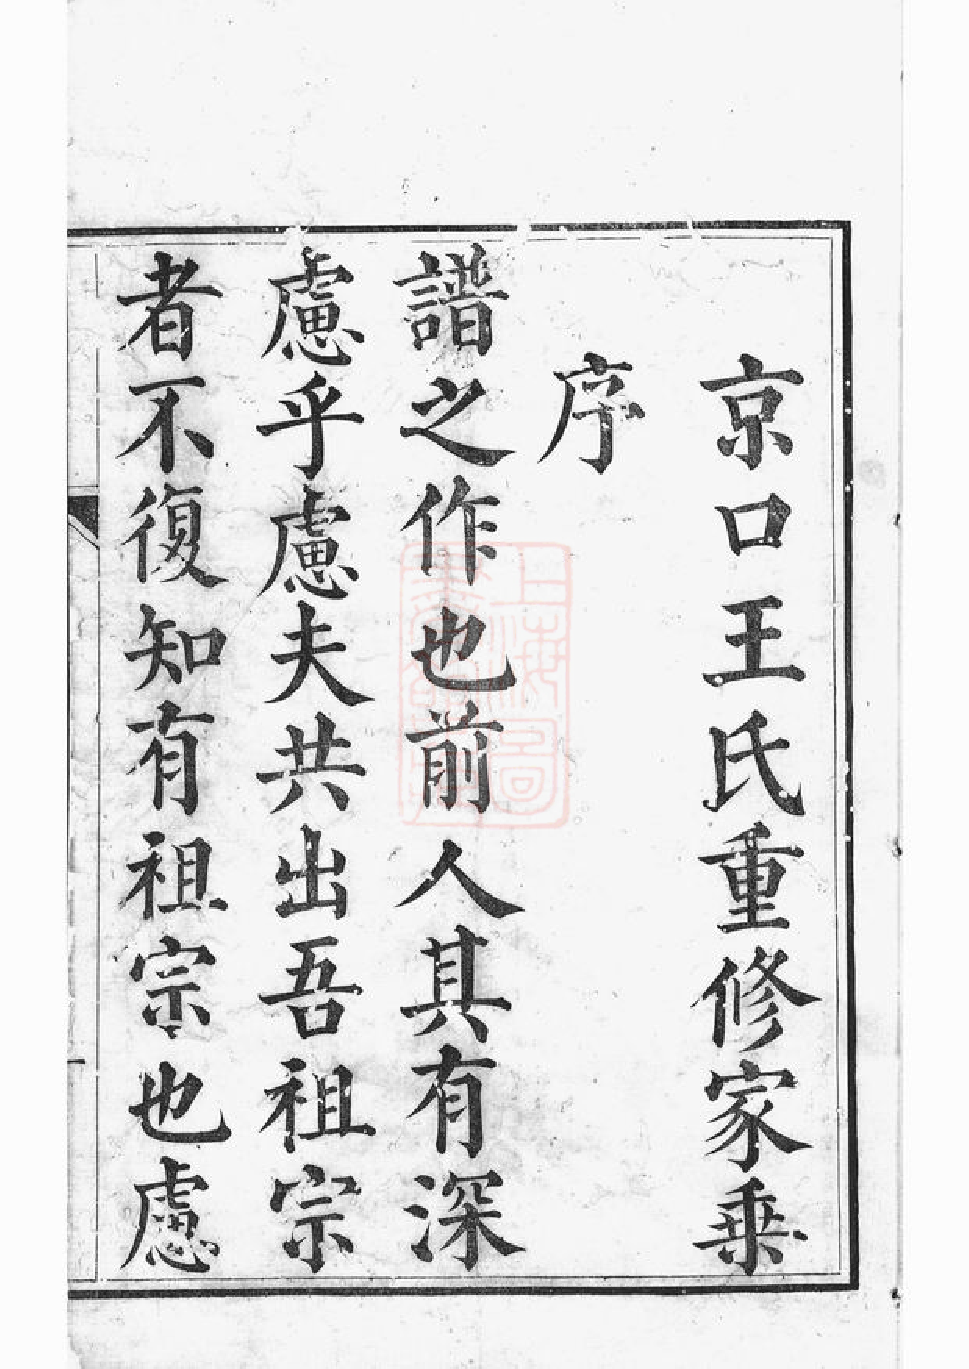 京口王氏重修家乗
序
譜之作也前人其有深
慮乎慮夫共出吾祖宗
者不復知有祖宗也慮